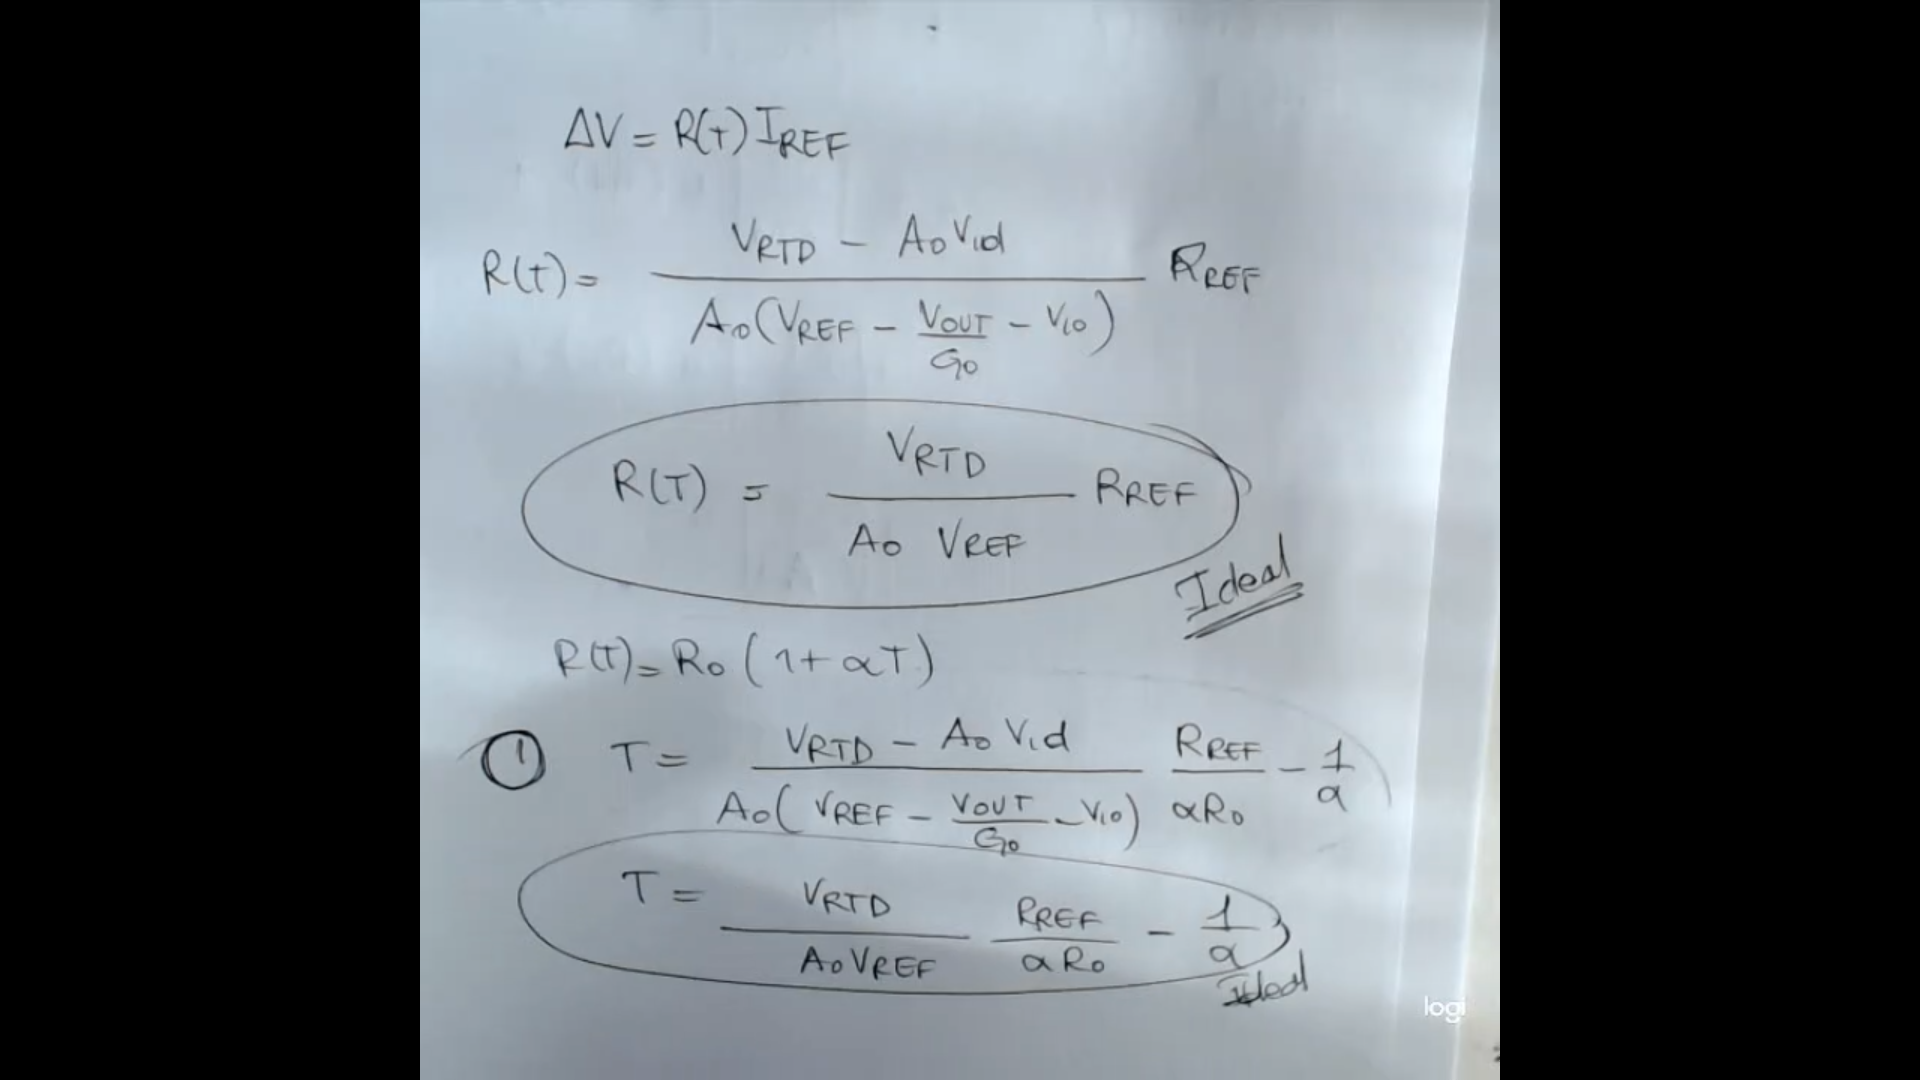 ΔV = R(T) I_REF
R(T) = (V_RTD − A_0 V_id) / (A_0 (V_REF − V_OUT/G_0 − V_io)) R_REF
R(T) = V_RTD / (A_0 V_REF) R_REF
Ideal
R(T) = R_0 (1 + αT)
① T = (V_RTD − A_0 V_id) / (A_0 (V_REF − V_OUT/G_0 − V_io)) R_REF / (αR_0) − 1/α
T = V_RTD / (A_0 V_REF) R_REF / (αR_0) − 1/α
Ideal
logi